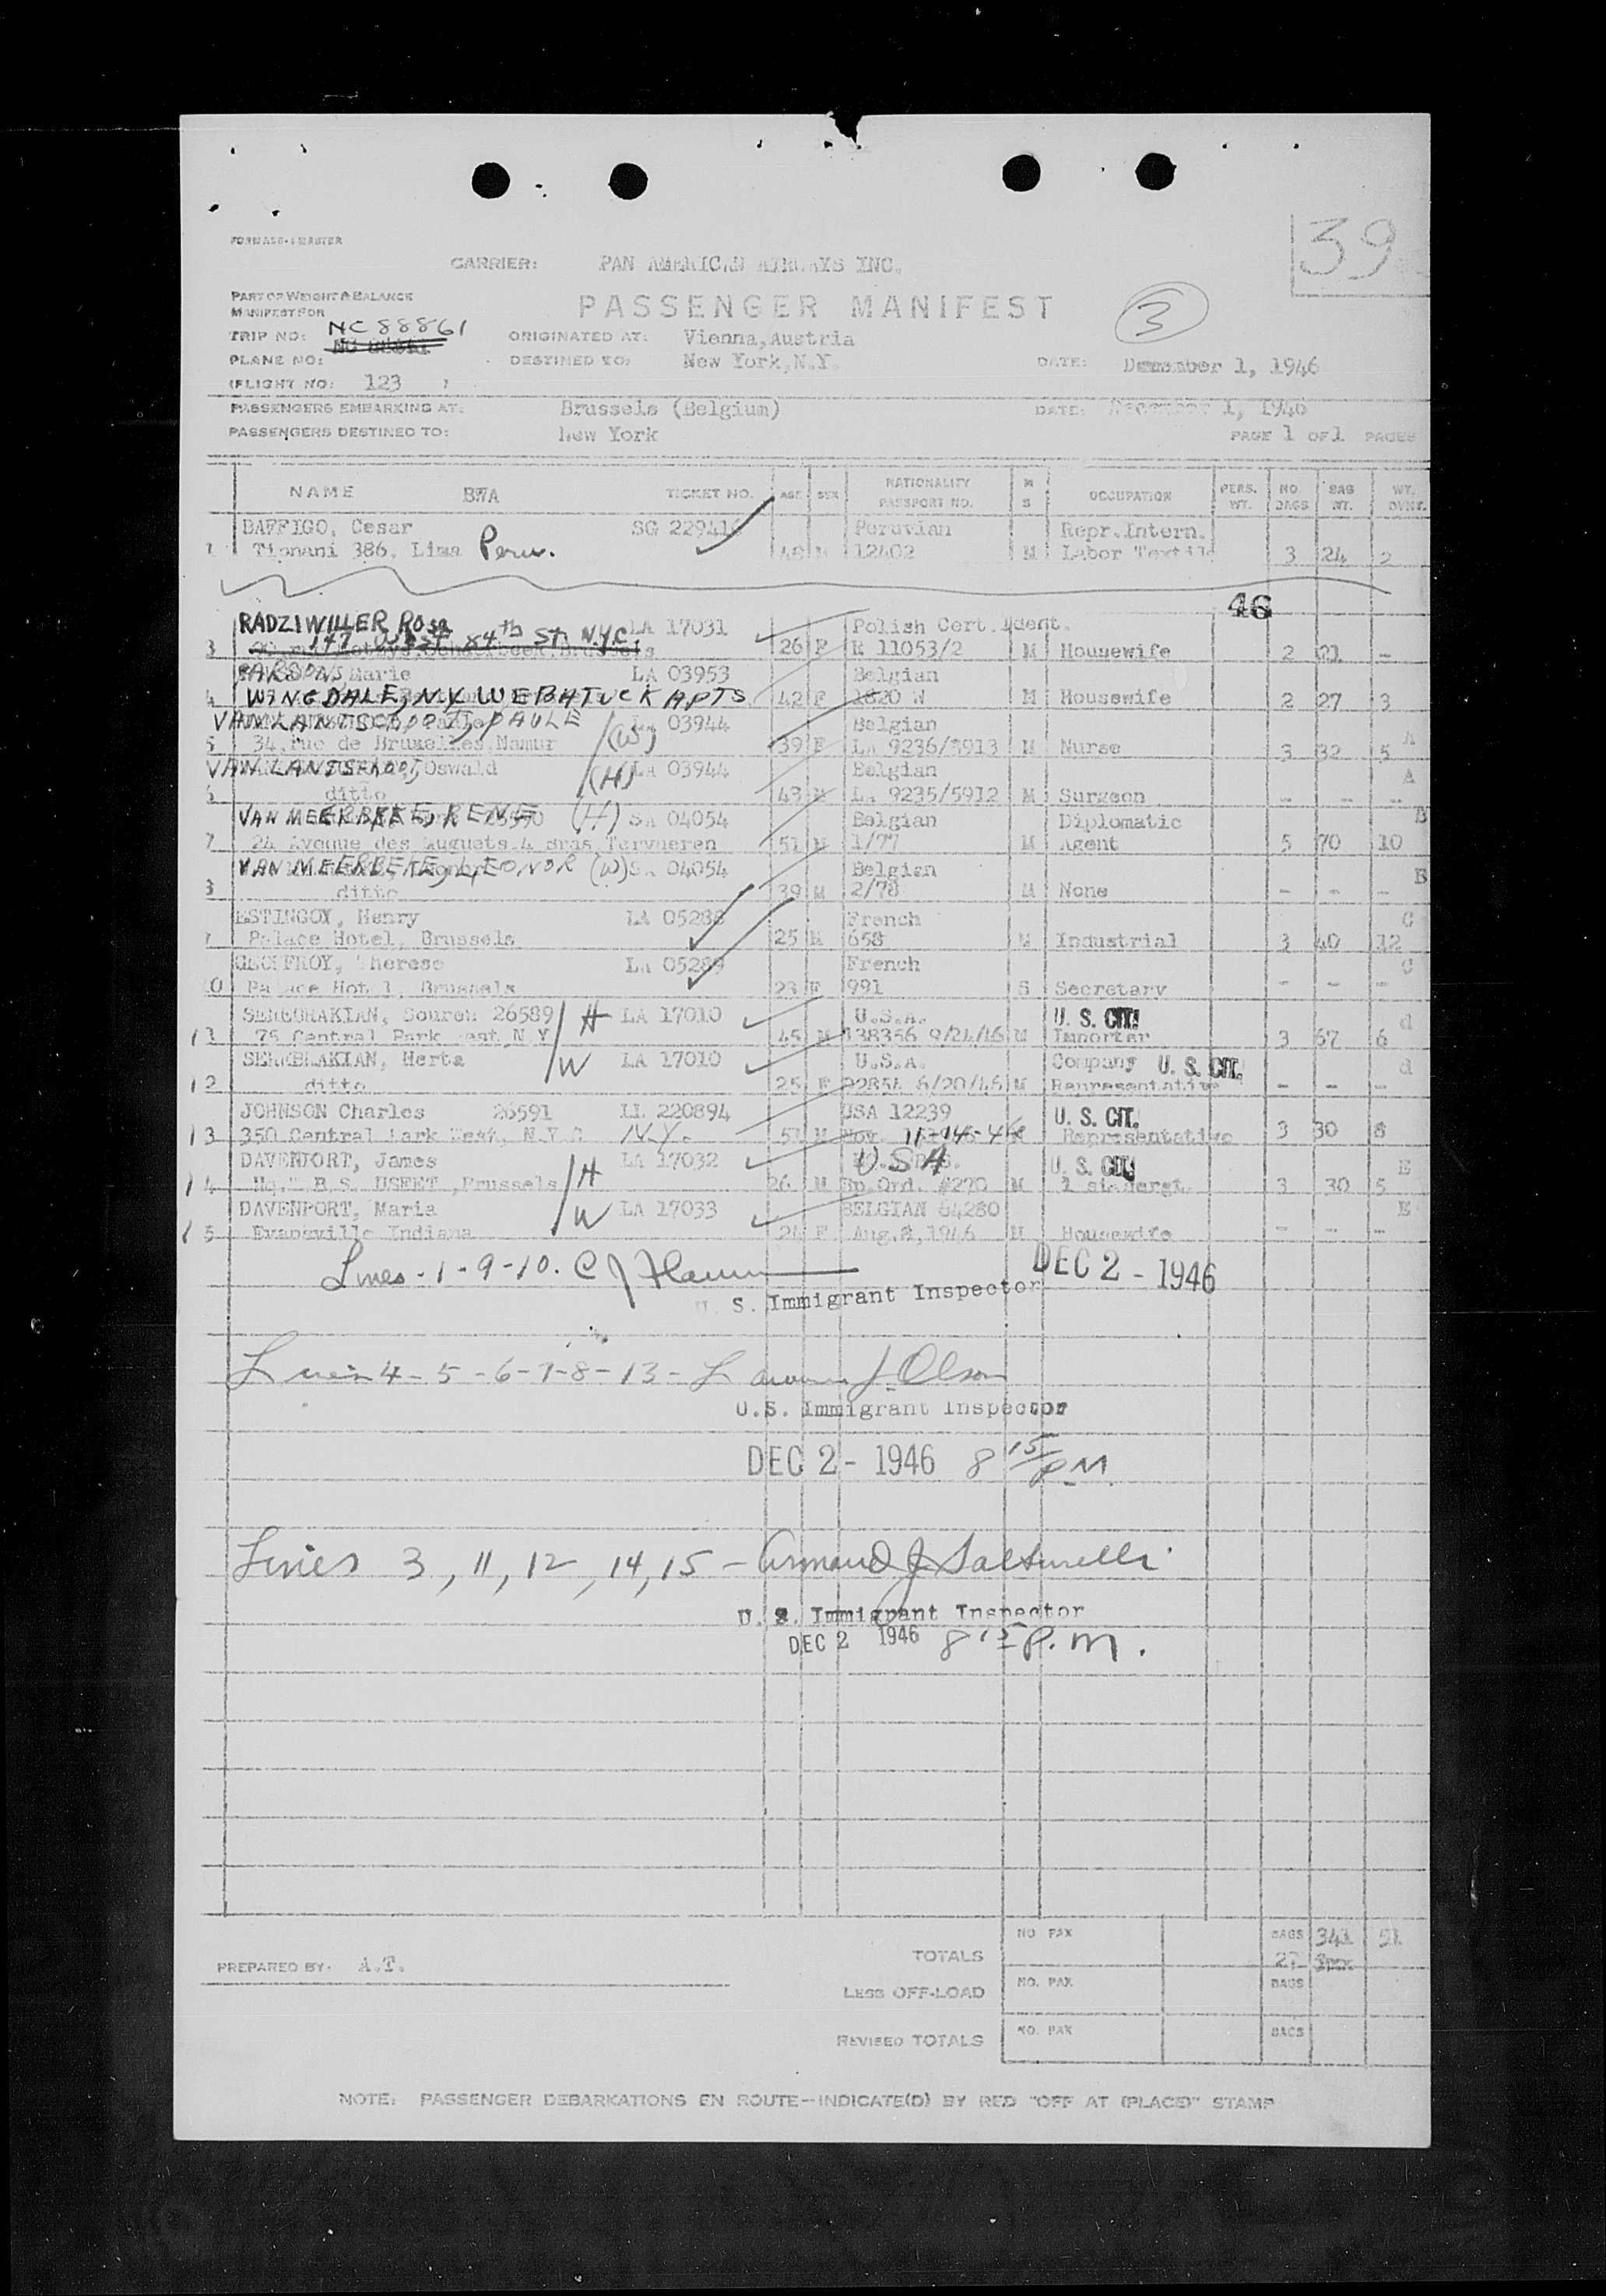 FORM ACS-1 MASTER
39
CARRIER: PAN AMERICAN AIRWAYS INC.
PART OF WEIGHT & BALANCE
MANIFEST FOR
PASSENGER MANIFEST
3
TRIP NO: NC 88861
ORIGINATED AT: Vienna, Austria
PLANE NO:
DESTINED TO: New York, N.Y.
DATE: December 1, 1946
(FLIGHT NO: 123 )
PASSENGERS EMBARKING AT: Brussels (Belgium) DATE: December 1, 1946
PASSENGERS DESTINED TO: New York
PAGE 1 OF 1 PAGES
NAME BWA TICKET NO. AGE SEX NATIONALITY PASSPORT NO. M S OCCUPATION PERS. WT. NO. BAGS BAG WT. WT. OVWT.
Cesar SG 229416 Peruvian Repr. Intern.
1 386, Lima Peru. 48 M 12402 M Labor Textile 3 24 2
46
RADZIWILLER ROSA LA 17031 Polish Cert. Ident.
3 147 West 84th St. N.Y.C. 26 F R 11053/2 M Housewife 2 21 -
PARSONS, Marie LA 03953 Belgian
4 WINGDALE, N.Y. WEBATUCK APTS 42 F 1820 W M Housewife 2 27 3
VAN LANTSCHOOT, PAULE (W) LA 03944 Belgian A
5 34, rue de Bruxelles, Namur 39 F LA 9236/5913 M Nurse 3 32 5
VAN LANTSCHOOT, Oswald (H) LA 03944 Belgian A
6 ditto 43 M LA 9235/5912 M Surgeon - - -
VAN MEERBEKE, RENE (H) SA 04054 Belgian Diplomatic B
7 24 Avenue des Muguets 4 Bras Tervueren 51 M 1/77 M Agent 5 70 10
VAN MEERBEKE, LEONOR (W) SA 04054 Belgian B
8 ditto 39 M 2/78 M None - - -
ESTINGOY, Henry LA 05288 French C
Palace Hotel, Brussels 25 M 658 M Industrial 3 40 12
GEOFFROY, Therese LA 05289 French C
10 Palace Hotel, Brussels 23 F 991 S Secretary - - -
SEREBRAKIAN, Souren 26589 H LA 17010 U.S.A. U. S. CIT. d
11 75 Central Park West, N Y 45 M 138356 9/24/46 M Importer 3 67 6
SEREBRAKIAN, Herta W LA 17010 U.S.A. Company U. S. CIT. d
12 ditto 25 F 6/20/46 M Representative - - -
JOHNSON Charles 26591 LL 220894 USA 12239 U. S. CIT.
13 350 Central Park West, N.Y.C N.Y. 51 M Nov. M Representative 3 30 8
DAVENPORT, James H LA 17032 USA U. S. CIT. E
14 USFET, Brussels 26 M Sp. Ord. #270 M 3 30 5
DAVENPORT, Maria W LA 17033 BELGIAN 64280 E
15 Evansville Indiana 24 F Aug. 8, 1946 M Housewife - - -
Lines - 1 - 9 - 10. C J
DEC 2 - 1946
U. S. Immigrant Inspector
Lines 4 - 5 - 6 - 7 - 8 - 13 - J. Olson
U.S. Immigrant Inspector
DEC 2 - 1946 8 15 PM
Lines 3, 11, 12, 14, 15 - Armand J.
U. S. Immigrant Inspector
DEC 2 1946 8 15 P.M.
TOTALS NO PAX BAGS 341 51
PREPARED BY: A.T.
LESS OFF-LOAD NO. PAX BAGS
REVISED TOTALS NO. PAX BAGS
NOTE: PASSENGER DEBARKATIONS EN ROUTE--INDICATE(D) BY RED "OFF AT (PLACE)" STAMP